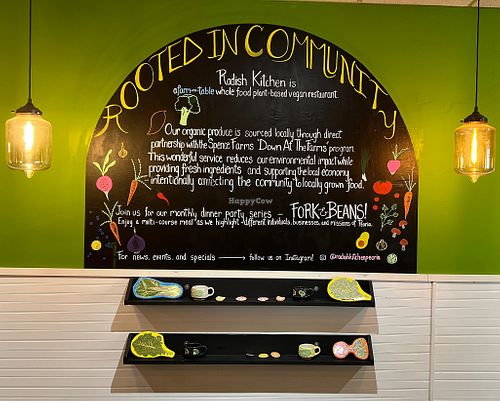 ROOTED IN COMMUNITY
Radish Kitchen is
a farm-to-table whole food plant-based vegan restaurant.
Our organic produce is sourced locally through direct
partnership with the Spence Farms "Down At The Farms" program.
This wonderful service reduces our environmental impact while
providing fresh ingredients and supporting the local economy
intentionally connecting the community to locally grown food.
HappyCow
Join us for our monthly dinner party series - FORK & BEANS!
Enjoy a multi-course meal as we highlight different individuals, businesses, and missions of Peoria.
For news, events, and specials → follow us on Instagram! @radishkitchenpeoria